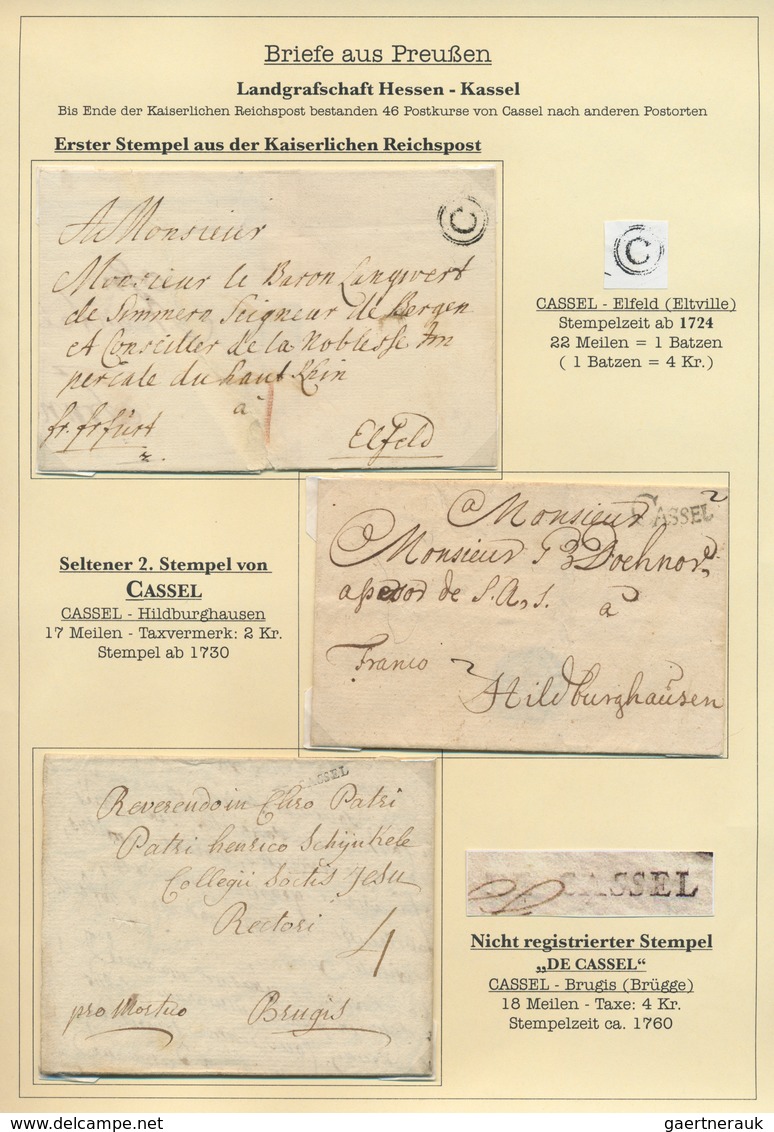 Briefe aus Preußen
Landgrafschaft Hessen - Kassel
Bis Ende der Kaiserlichen Reichspost bestanden 46 Postkurse von Cassel nach anderen Postorten
Erster Stempel aus der Kaiserlichen Reichspost
C
A Monsieur
Monsieur le Baron Langwert
de Simmern Seigneur de Bergen
et Conseiller de la Noblesse Im
periale du haut Rhin
à
fr. frfurt
Elfeld
C
CASSEL - Elfeld (Eltville)
Stempelzeit ab 1724
22 Meilen = 1 Batzen
( 1 Batzen = 4 Kr.)
Seltener 2. Stempel von
CASSEL
CASSEL - Hildburghausen
17 Meilen - Taxvermerk: 2 Kr.
Stempel ab 1730
CASSEL
a Monsieur
Monsieur
de S. A. S. a
Franco
Hildburghausen
CASSEL
Reverendo in Chro Patri
Patri henrico Schijnkele
Collegii Soctis Jesu
Rectori 4
Brugis
CASSEL
Nicht registrierter Stempel
„DE CASSEL“
CASSEL - Brugis (Brügge)
18 Meilen - Taxe: 4 Kr.
Stempelzeit ca. 1760
www.delcampe.net
gaertnerauk